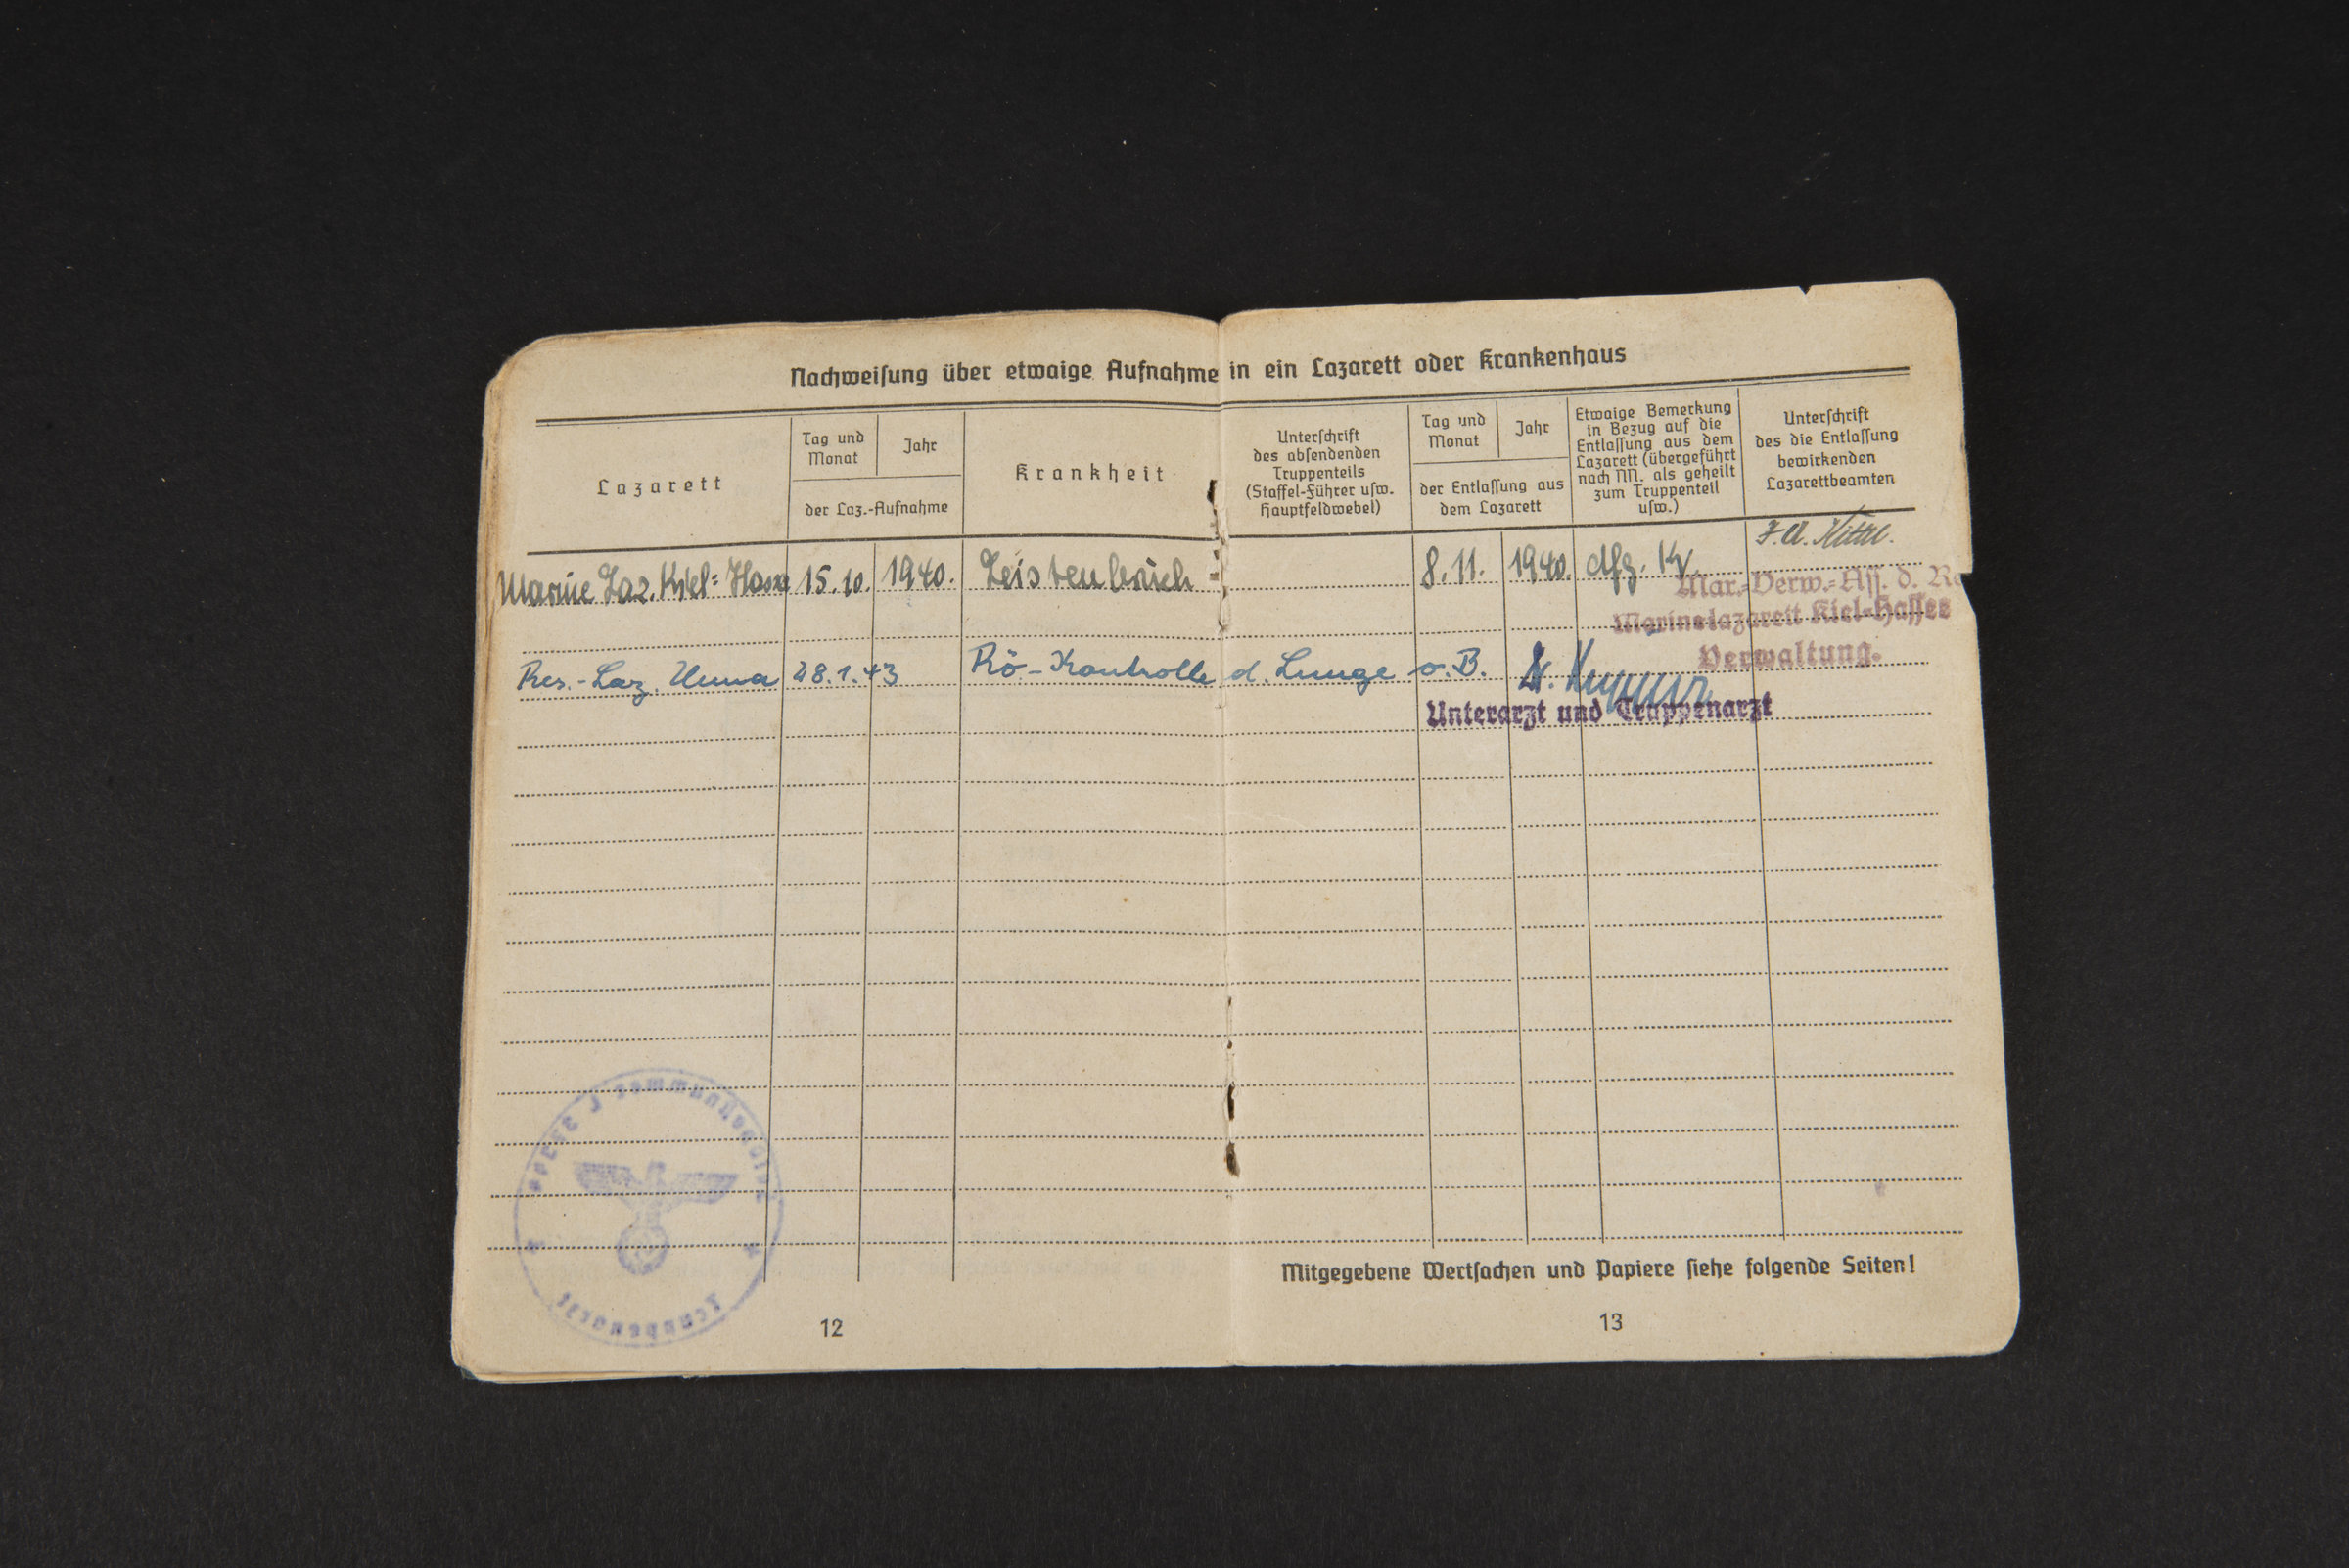 Nachweisung über etwaige Aufnahme in ein Lazarett oder Krankenhaus
Lazarett
Tag und
Monat
Jahr
der Laz.-Aufnahme
Krankheit
Unterschrift
des absendenden
Truppenteils
(Staffel-Führer usw.
Hauptfeldwebel)
Tag und
Monat
Jahr
der Entlassung aus
dem Lazarett
Etwaige Bemerkung
in Bezug auf die
Entlassung aus dem
Lazarett (übergeführt
nach NN. als geheilt
zum Truppenteil
usw.)
Unterschrift
des die Entlassung
bewirkenden
Lazarettbeamten
Marine Laz. Kiel= 15.10. 1940. Leistenbruch 8.11. 1940. dfg. Kv.
Mar.-Verw.-Ass. d.
Marinelazarett Kiel-Hassee
Verwaltung.
Res.-Laz. Unna 28.1.43 Rö-Kontrolle d. Lunge o.B. Dr.
Unterarzt und Truppenarzt
Truppenarzt
Mitgegebene Wertsachen und Papiere siehe folgende Seiten!
12
13